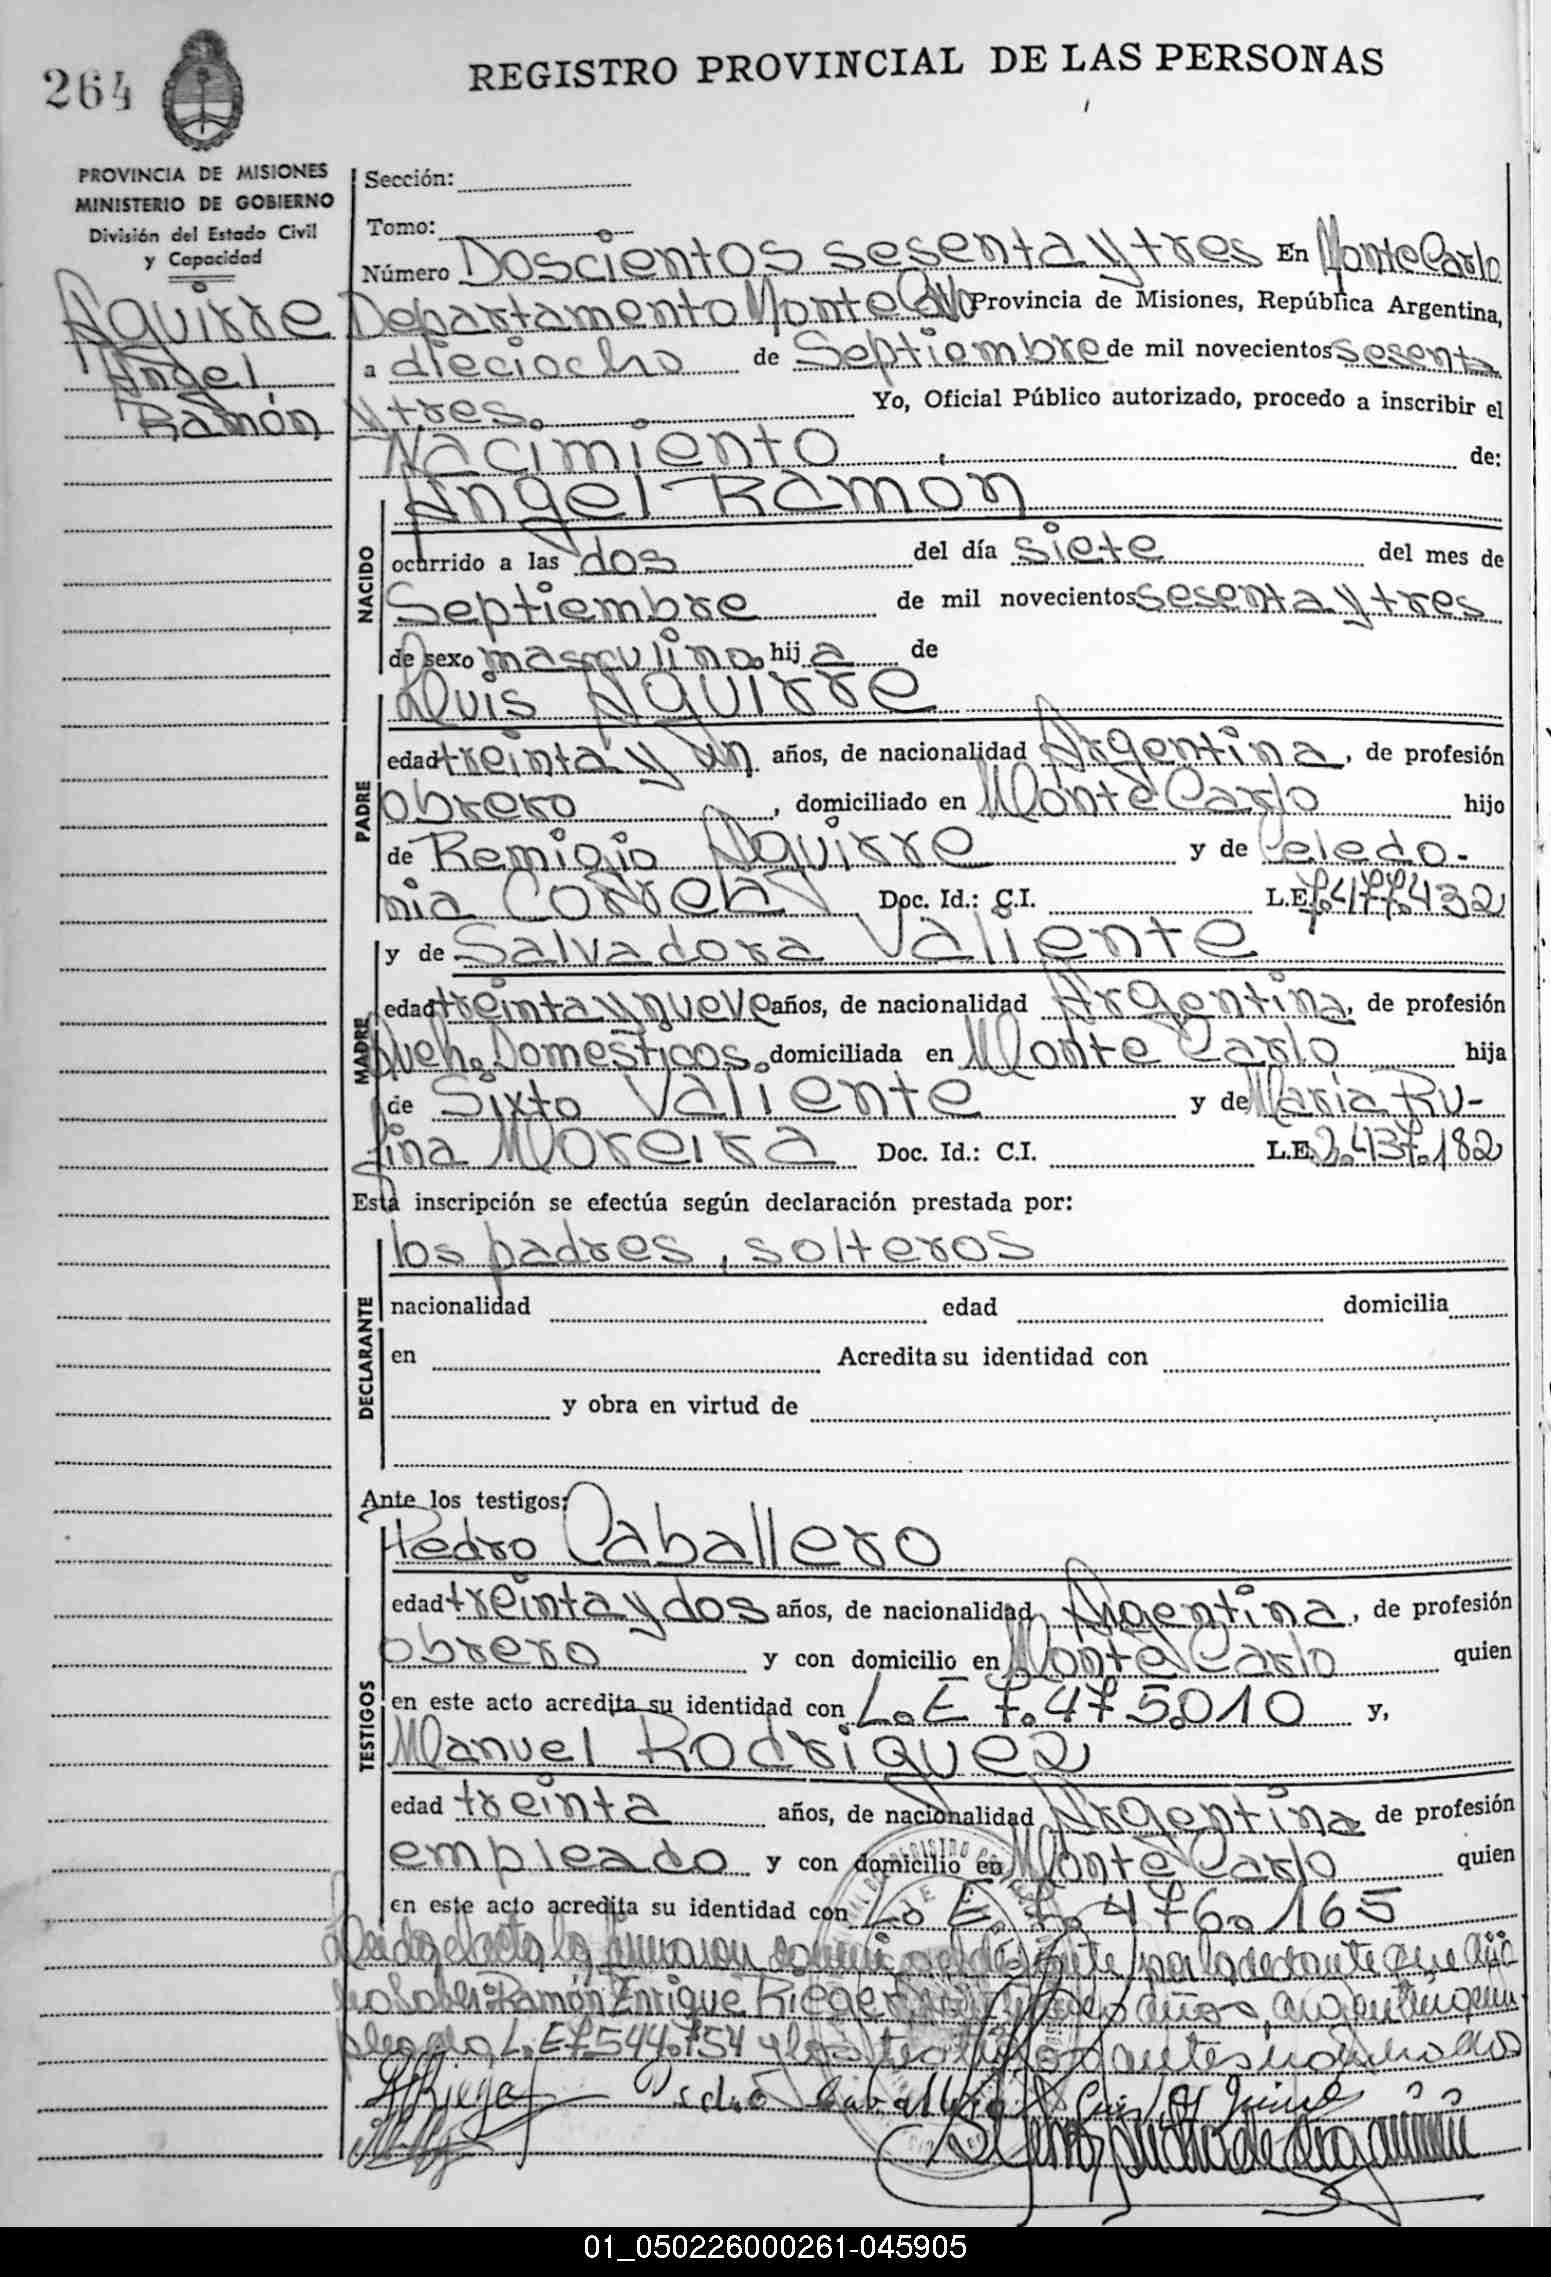 264
REGISTRO PROVINCIAL DE LAS PERSONAS
PROVINCIA DE MISIONES
MINISTERIO DE GOBIERNO
División del Estado Civil
y Capacidad
Aguirre
Angel
Ramón
Sección:
Tomo:
Número Doscientos sesenta y tres En Monte Carlo
Departamento Monte Carlo Provincia de Misiones, República Argentina,
a dieciocho de Septiembre de mil novecientos sesenta
y tres. Yo, Oficial Público autorizado, procedo a inscribir el
Nacimiento de:
NACIDO
Angel Ramon
ocurrido a las dos del día siete del mes de
Septiembre de mil novecientos sesenta y tres
de sexo masculino. hij a de
Luis Aguirre
PADRE
edad treinta y un años, de nacionalidad Argentina, de profesión
obrero, domiciliado en Monte Carlo hijo
de Remigio Aguirre y de Celedo-
nia Correa Doc. Id.: C.I. L.E. 7.477.432
y de Salvadora Valiente
MADRE
edad treinta y nueve años, de nacionalidad Argentina, de profesión
Queh. Domesticos. domiciliada en Monte Carlo hija
de Sixto Valiente y de Maria Ru-
fina Moreira Doc. Id.: C.I. L.E. 2.437.182
Esta inscripción se efectúa según declaración prestada por:
los padres, solteros
DECLARANTE
nacionalidad edad domicilia
en Acredita su identidad con
y obra en virtud de
Ante los testigos:
TESTIGOS
Pedro Caballero
edad treinta y dos años, de nacionalidad Argentina, de profesión
obrero y con domicilio en Monte Carlo quien
en este acto acredita su identidad con L.E 7.475.010 y,
Manuel Rodriguez
edad treinta años, de nacionalidad Argentina de profesión
empleado y con domicilio en Monte Carlo quien
en este acto acredita su identidad con L.E. 7.476.165
Leida el acta la firmaron por la declarante que dijo
no saber: Ramón Enrique Rieger años, argentino, em-
pleado, L.E 7.544.754 y los testigos antes nombrados
Pedro Caballero Luis Aguirre
01_050226000261-045905